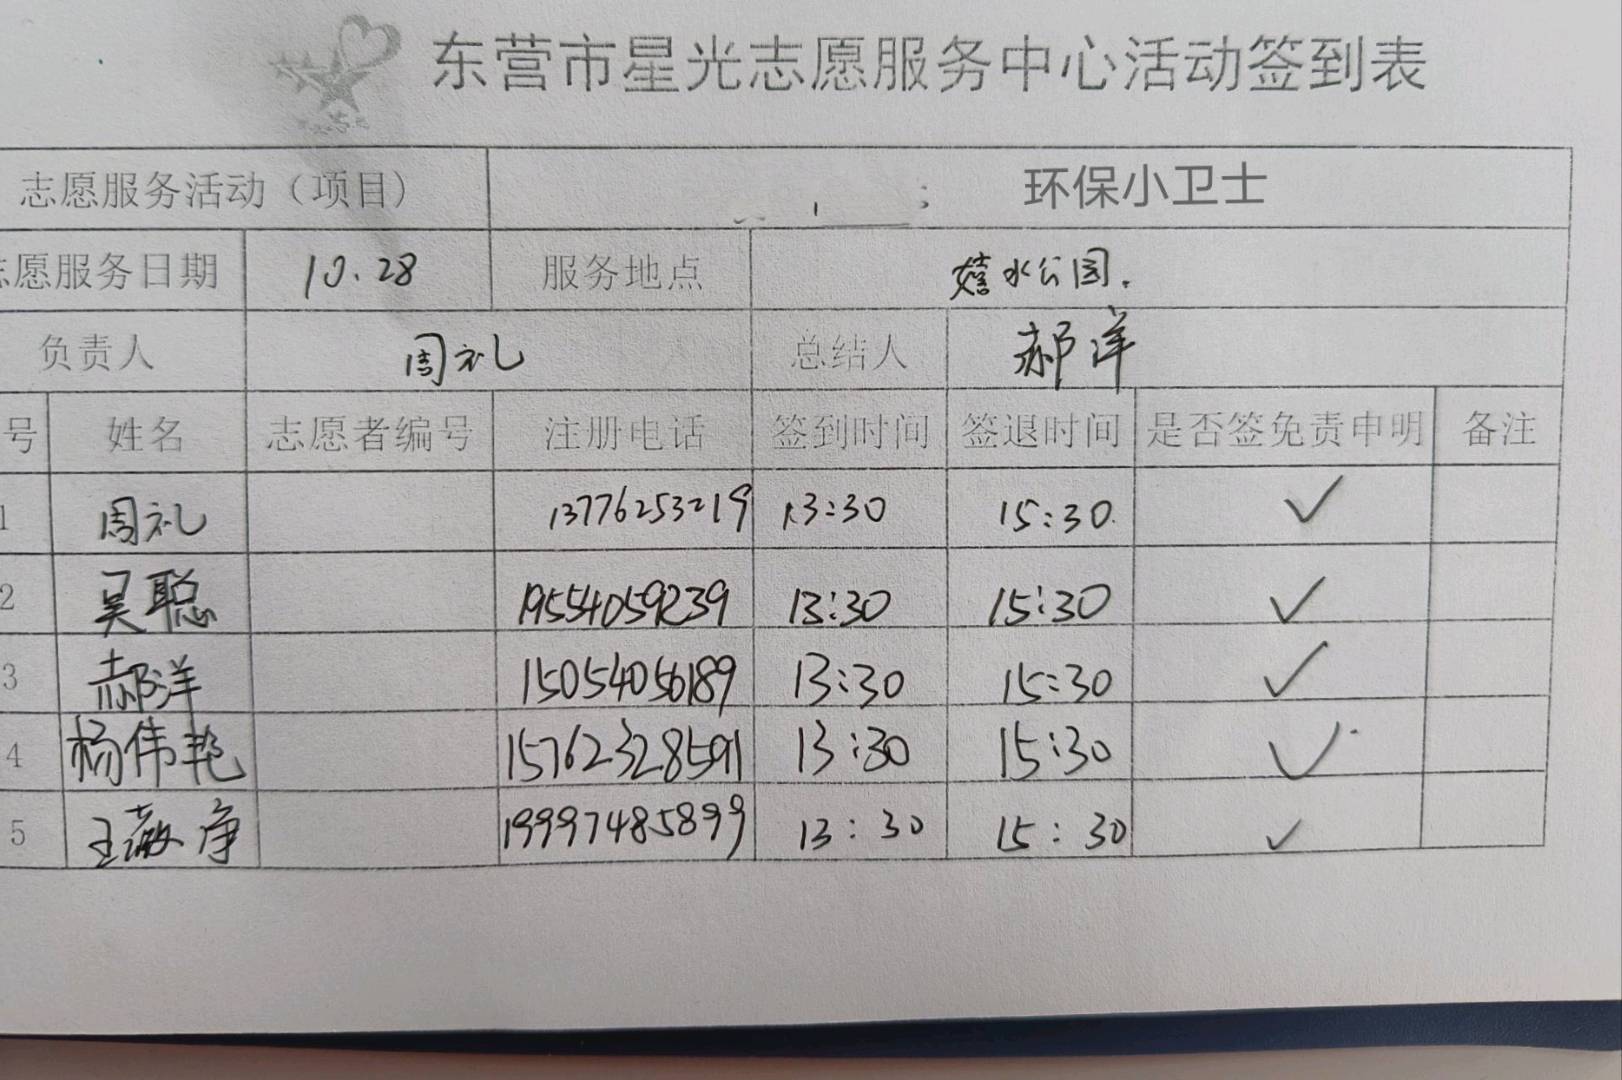 东营市星光志愿服务中心活动签到表
志愿服务活动（项目） 环保小卫士
志愿服务日期 10.28 服务地点 嬉水公园.
负责人 周礼 总结人 郝洋
号 姓名 志愿者编号 注册电话 签到时间 签退时间 是否签免责申明 备注
1 周礼 13776253219 13:30 15:30 ✓
2 吴聪 19554059239 13:30 15:30 ✓
3 郝洋 15054056189 13:30 15:30 ✓
4 杨伟艳 15762328591 13:30 15:30 ✓
5 王薇净 19997485899 13:30 15:30 ✓